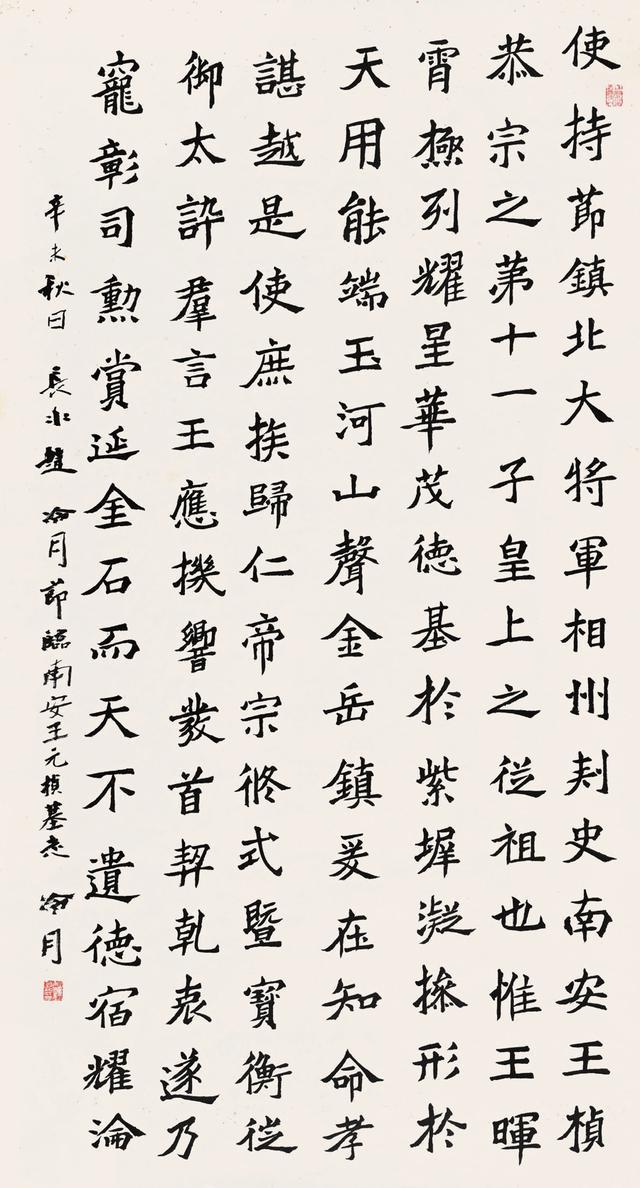 使持節鎮北大將軍相州刺史南安王楨
恭宗之第十一子皇上之從祖也惟王暉
霄極列耀星華茂德基於紫墀凝操形於
天用能端玉河山聲金岳鎮爰在知命孝
諶越是使庶族歸仁帝宗攸式暨寶衡從
御太訢羣言王應機響發首契乾衷遂乃
寵彰司勳賞延金石而天不遺德宿耀淪
辛未秋日 冷月節臨南安王元楨墓志 冷月